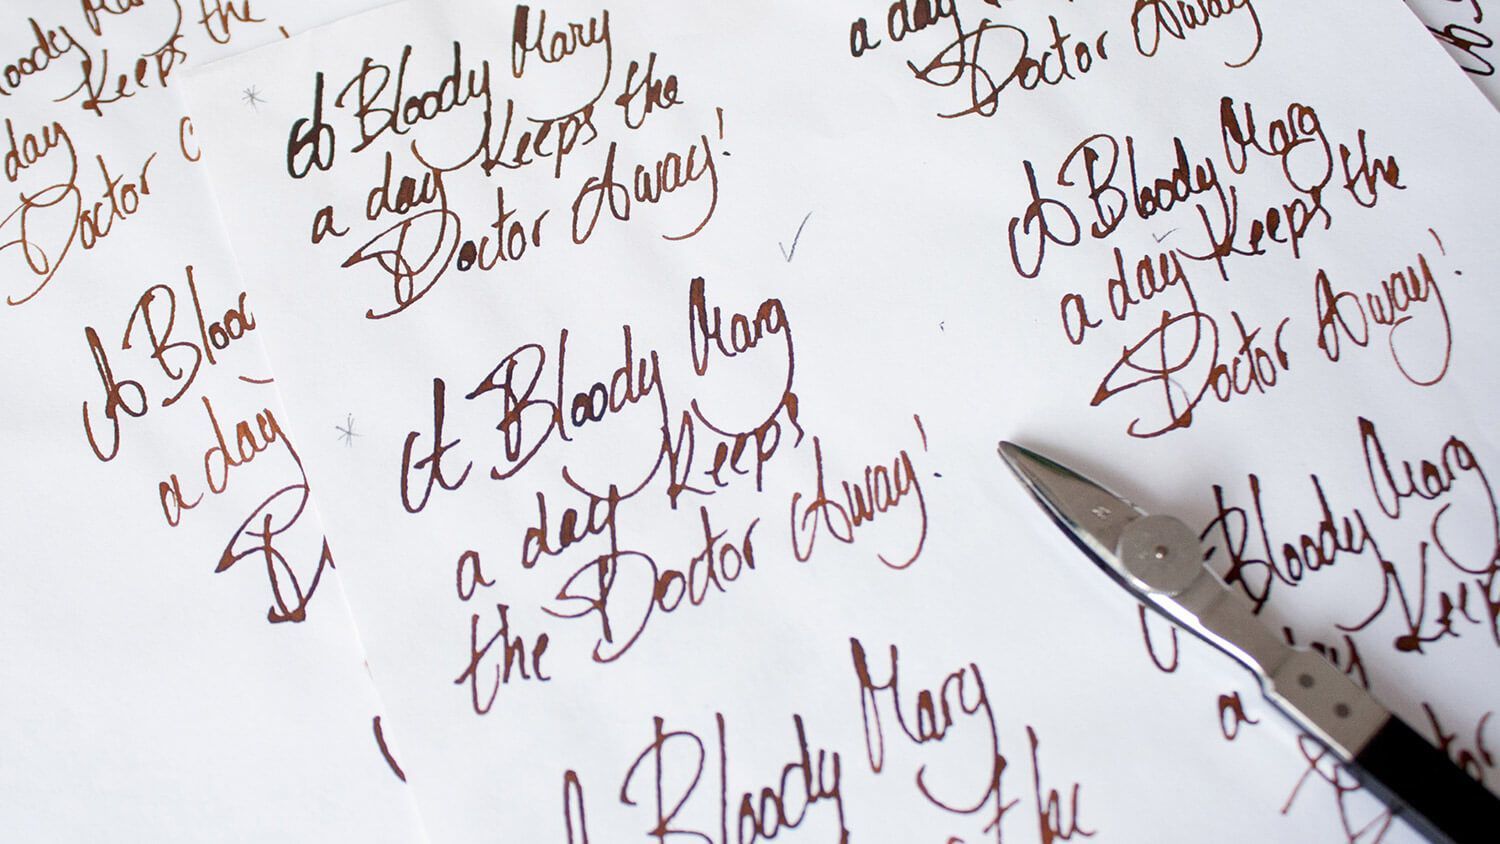 oody Mary
Keeps the
day
Doctor
A Bloo
a day
D
A Bloody Mary
a day Keeps the
Doctor Away!
A Bloody Mary
a day Keeps
the Doctor Away!
A Bloody Mary
the
a day
Doctor Away
A Bloody Mary
a day Keeps the
Doctor Away!
Bloody Mary
Keep
a